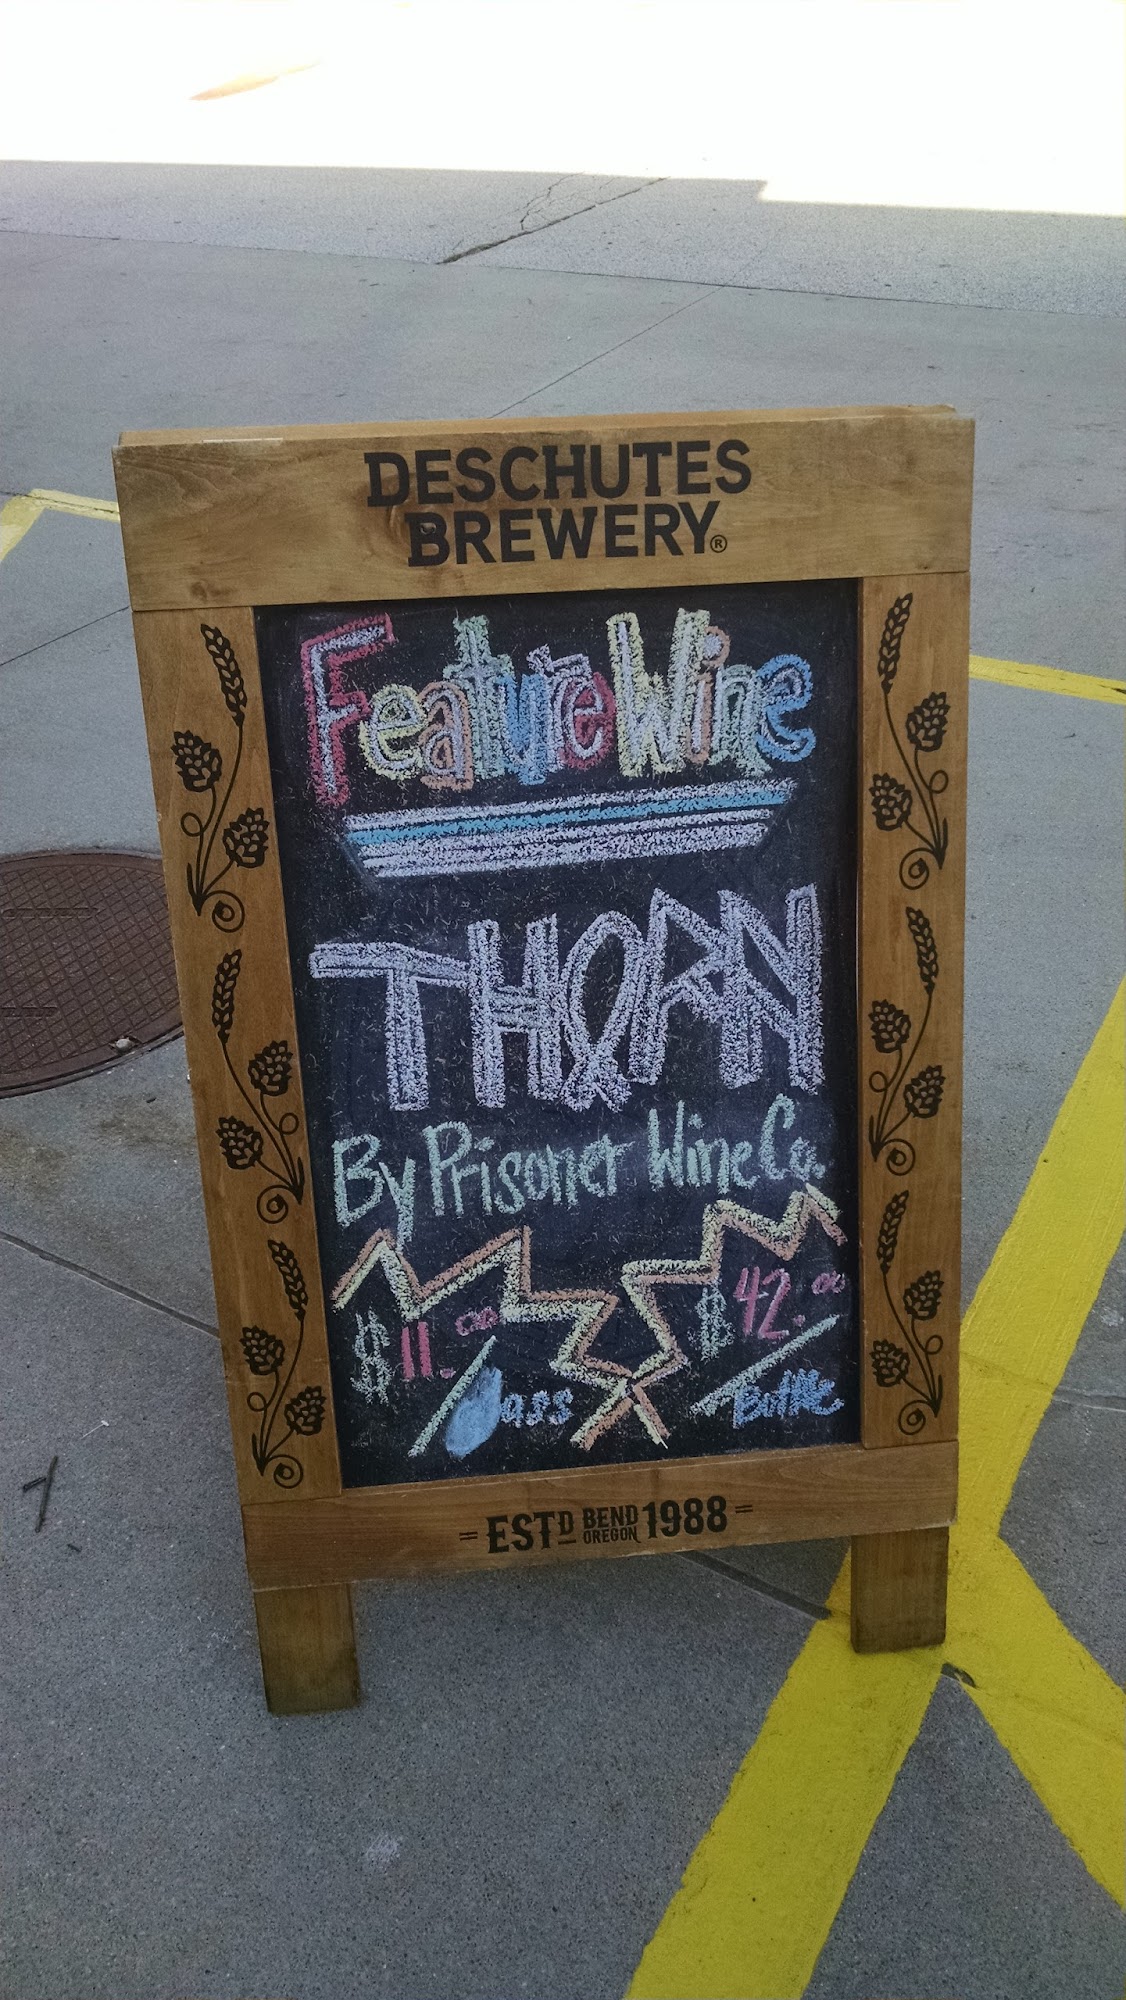 DESCHUTES
BREWERY®
Feature Wine
THORN
By Prisoner Wine Co.
$11.00 $42.00
/ Bottle
= ESTD BEND OREGON 1988 =